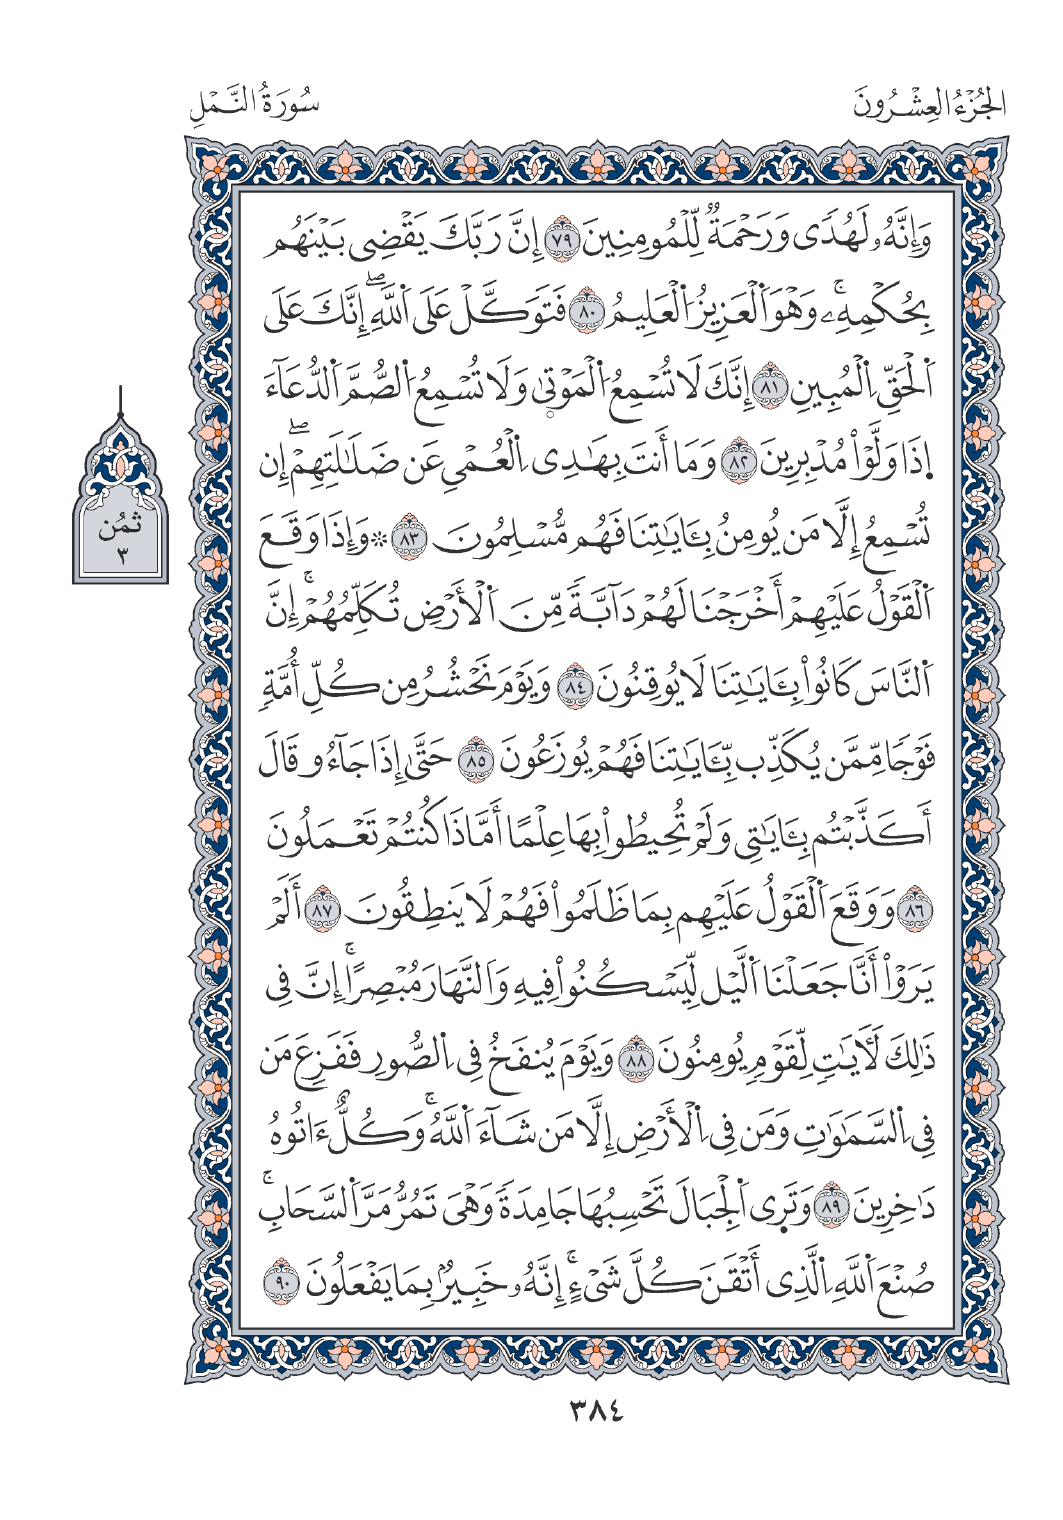 الجُزْءُ العِشْرُونَ
سُورَةُ النَّمْلِ
وَإِنَّهُۥ لَهُدٗى وَرَحْمَةٞ لِّلْمُومِنِينَ ٧٩ إِنَّ رَبَّكَ يَقْضِى بَيْنَهُم
بِحُكْمِهِۦۚ وَهْوَ اَ۬لْعَزِيزُ اُ۬لْعَلِيمُ ٨٠ فَتَوَكَّلْ عَلَى اَ۬للَّهِۖ إِنَّكَ عَلَى
اَ۬لْحَقِّ اِ۬لْمُبِينِ ٨١ إِنَّكَ لَا تُسْمِعُ اُ۬لْمَوْت۪ىٰ وَلَا تُسْمِعُ اُ۬لصُّمَّ اَ۬لدُّعَآءَ
ا۪ذَا وَلَّوْاْ مُدْبِرِينَ ٨٢ وَمَا أَنتَ بِهَٰدِى اِ۬لْعُمْيِ عَن ضَلَٰلَتِهِمْۖ إِن
تُسْمِعُ إِلَّا مَن يُومِنُ بِـَٔايَٰتِنَا فَهُم مُّسْلِمُونَ ٨٣ ۞ وَإِذَا وَقَعَ
اَ۬لْقَوْلُ عَلَيْهِمْ أَخْرَجْنَا لَهُمْ دَآبَّةٗ مِّنَ اَ۬لْأَرْضِ تُكَلِّمُهُمْۚ إِنَّ
اَ۬لنَّاسَ كَانُواْ بِـَٔايَٰتِنَا لَا يُوقِنُونَ ٨٤ وَيَوْمَ نَحْشُرُ مِن كُلِّ أُمَّةٖ
فَوْجٗا مِّمَّن يُكَذِّب بِّـَٔايَٰتِنَا فَهُمْ يُوزَعُونَ ٨٥ حَتَّىٰ إِذَا جَآءُو قَالَ
أَكَذَّبْتُم بِـَٔايَٰتِى وَلَمْ تُحِيطُواْ بِهَا عِلْمًا أَمَّاذَا كُنتُمْ تَعْمَلُونَ
٨٦ وَوَقَعَ اَ۬لْقَوْلُ عَلَيْهِم بِمَا ظَلَمُواْ فَهُمْ لَا يَنطِقُونَ ٨٧ أَلَمْ
يَرَوْاْ أَنَّا جَعَلْنَا اَ۬لَّيْل لِّيَسْكُنُواْ فِيهِ وَالنَّهَارَ مُبْصِرًاۚ إِنَّ فِى
ذَٰلِكَ لَأٓيَٰتٖ لِّقَوْمٖ يُومِنُونَ ٨٨ وَيَوْمَ يُنفَخُ فِى اِ۬لصُّورِ فَفَزِعَ مَن
فِى اِ۬لسَّمَٰوَٰتِ وَمَن فِى اِ۬لْأَرْضِ إِلَّا مَن شَآءَ اَ۬للَّهُۚ وَكُلٌّ ءَاتُوهُ
دَٰخِرِينَ ٨٩ وَتَرَى اَ۬لْجِبَالَ تَحْسِبُهَا جَامِدَةٗ وَهْىَ تَمُرُّ مَرَّ اَ۬لسَّحَابِۚ
صُنْعَ اَ۬للَّهِ اِ۬لَّذِى أَتْقَنَ كُلَّ شَىْءٍۚ إِنَّهُۥ خَبِيرُۢ بِمَا يَفْعَلُونَ ٩٠
ثُمُن
٣
٣٨٤